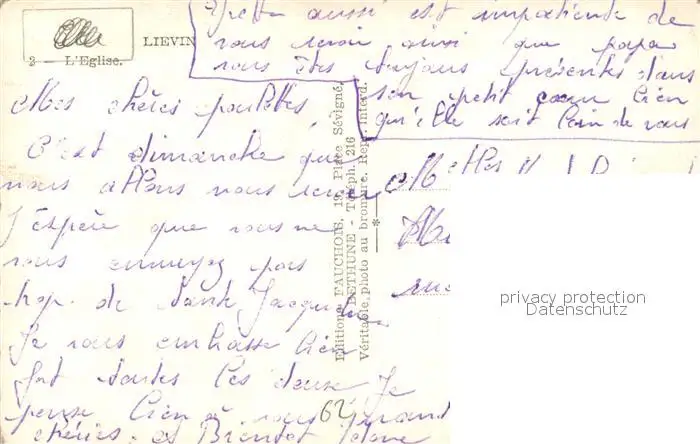 LIEVIN
2 — L'Eglise.
aussi est impatiente de
vous revoir ainsi que papa
vous êtes toujours présentes dans
son petit coeur bien
qu'elle soit loin de vous
Mes chères poulettes,
C'est dimanche que
nous allons nous revoir
J'espère que vous ne
vous ennuyez pas
trop de tante Jacqueline
Je vous embrasse bien
fort toutes les deux. Je
pense bien à vous
chéries. et Bientot
Editions FAUCHOIS, 19, Place Sévigné,
BETHUNE - Téléph. 216
Véritable photo au bromure. Repr. interd.
Melles
62
privacy protection
Datenschutz